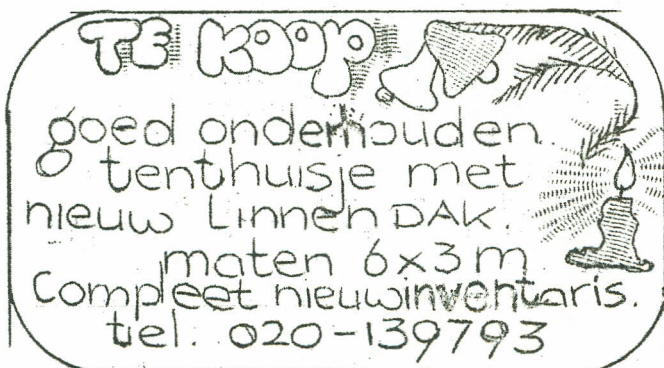 TE KOOP
goed onderhouden
tenthuisje met
nieuw Linnen DAK.
maten 6x3 m
Compleet nieuw inventaris.
tel. 020-139793